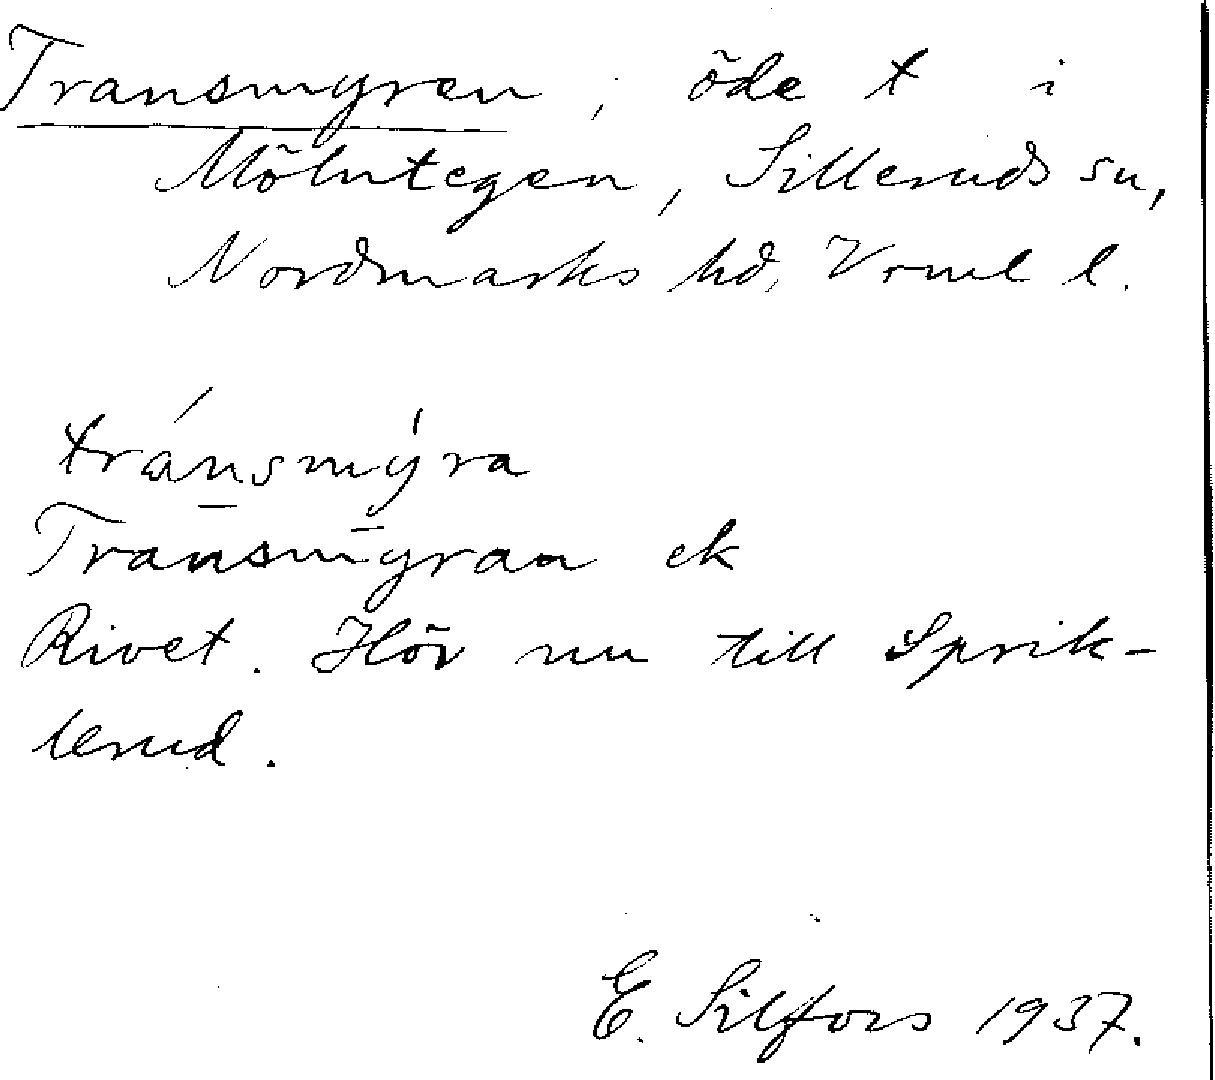 Transmyren, öde t i
Mölntegen, Silleruds sn,
Nordmarks hd, Vrml l.
tránsmýra
Transmyraa ek
Rivet. Hör nu till Sprik-
lerud.
E. Silfors 1937.